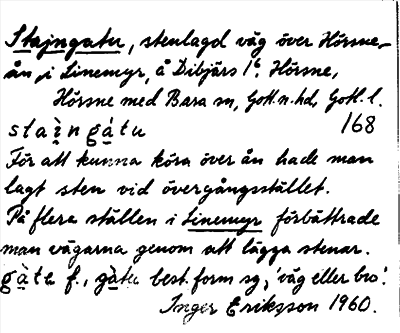 Stajngatu, stenlagd väg över Hörsne-
ån, i Linemyr, å Dibjärs 1⁶, Hörsne,
Hörsne med Bara sn, Gotl.n.hd, Gotl. l.
staìngátu 168
För att kunna köra över ån hade man
lagt sten vid övergångsstället.
På flera ställen i Linemyr förbättrade
man vägarna genom att lägga stenar.
gàta f., gàtu best. form sg., 'väg eller bro'.
Inger Eriksson 1960.